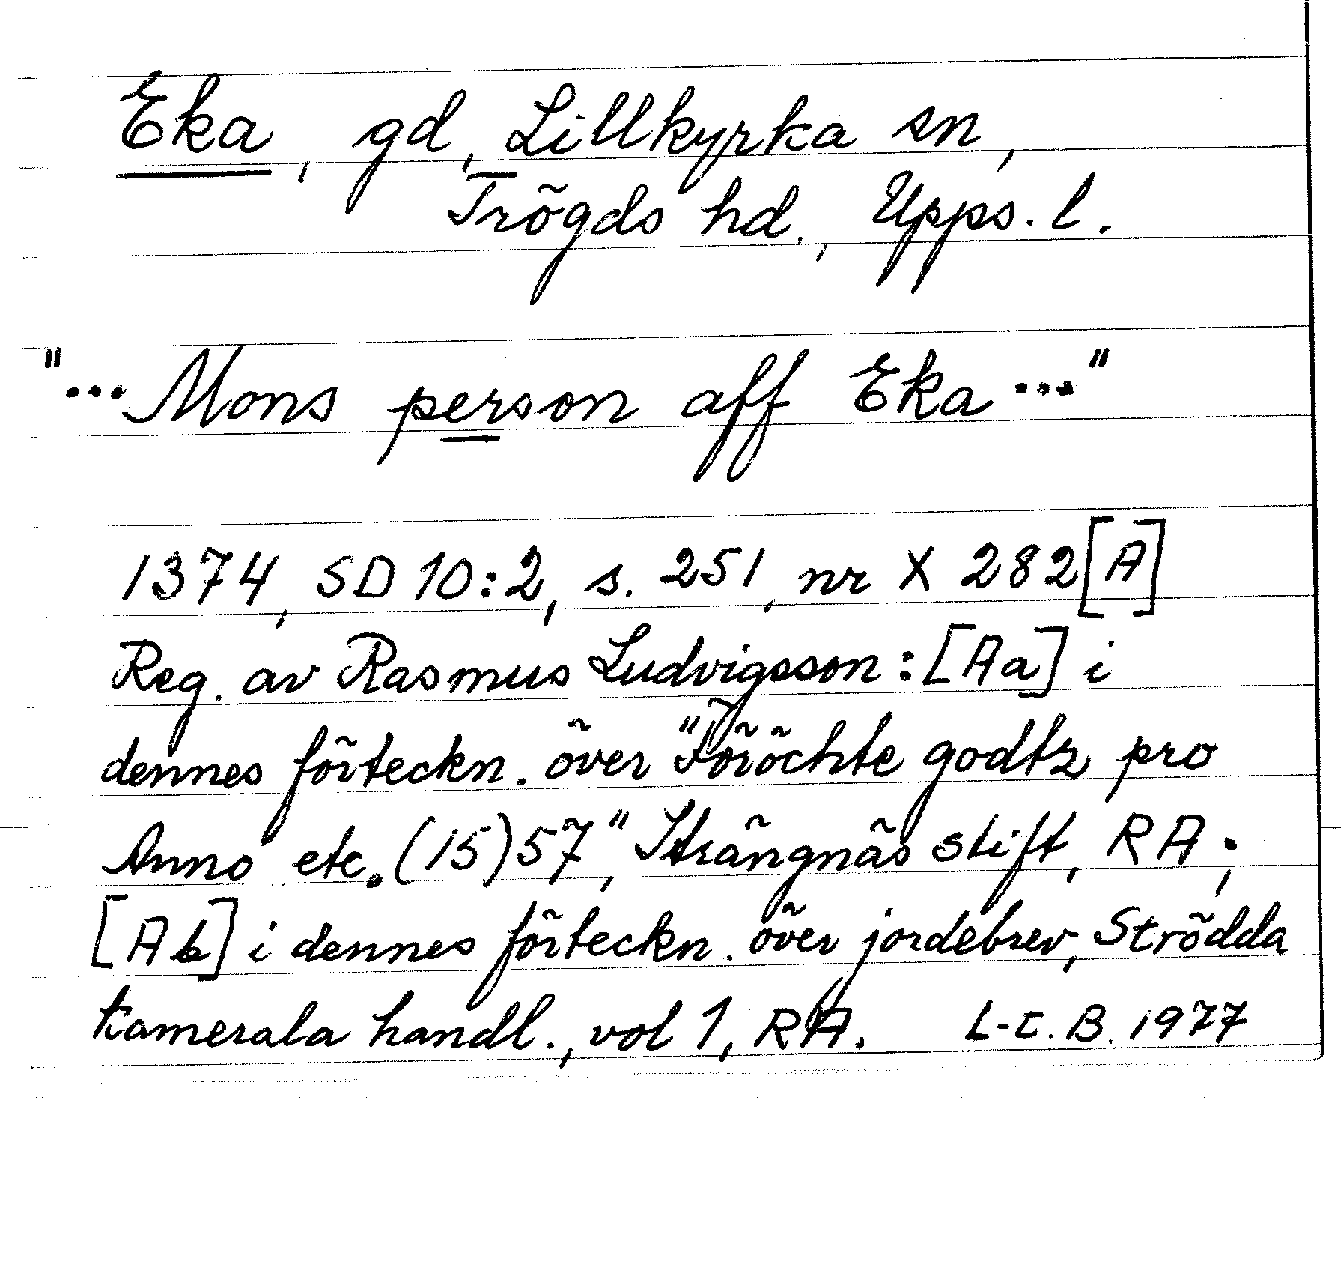 Eka, gd, Lillkyrka sn,
Trögds hd., Upps. l.
"...Mons person aff Eka..."
1374, SD 10:2, s. 251, nr X 282[A]
Reg. av Rasmus Ludvigsson: [Aa] i
dennes förteckn. över "Föröchte godtz pro
Anno etc. (15)57", Strängnäs stift, RA;
[Ab] i dennes förteckn. över jordebrev, Strödda
kamerala handl., vol 1, RA. L-E.B. 1977